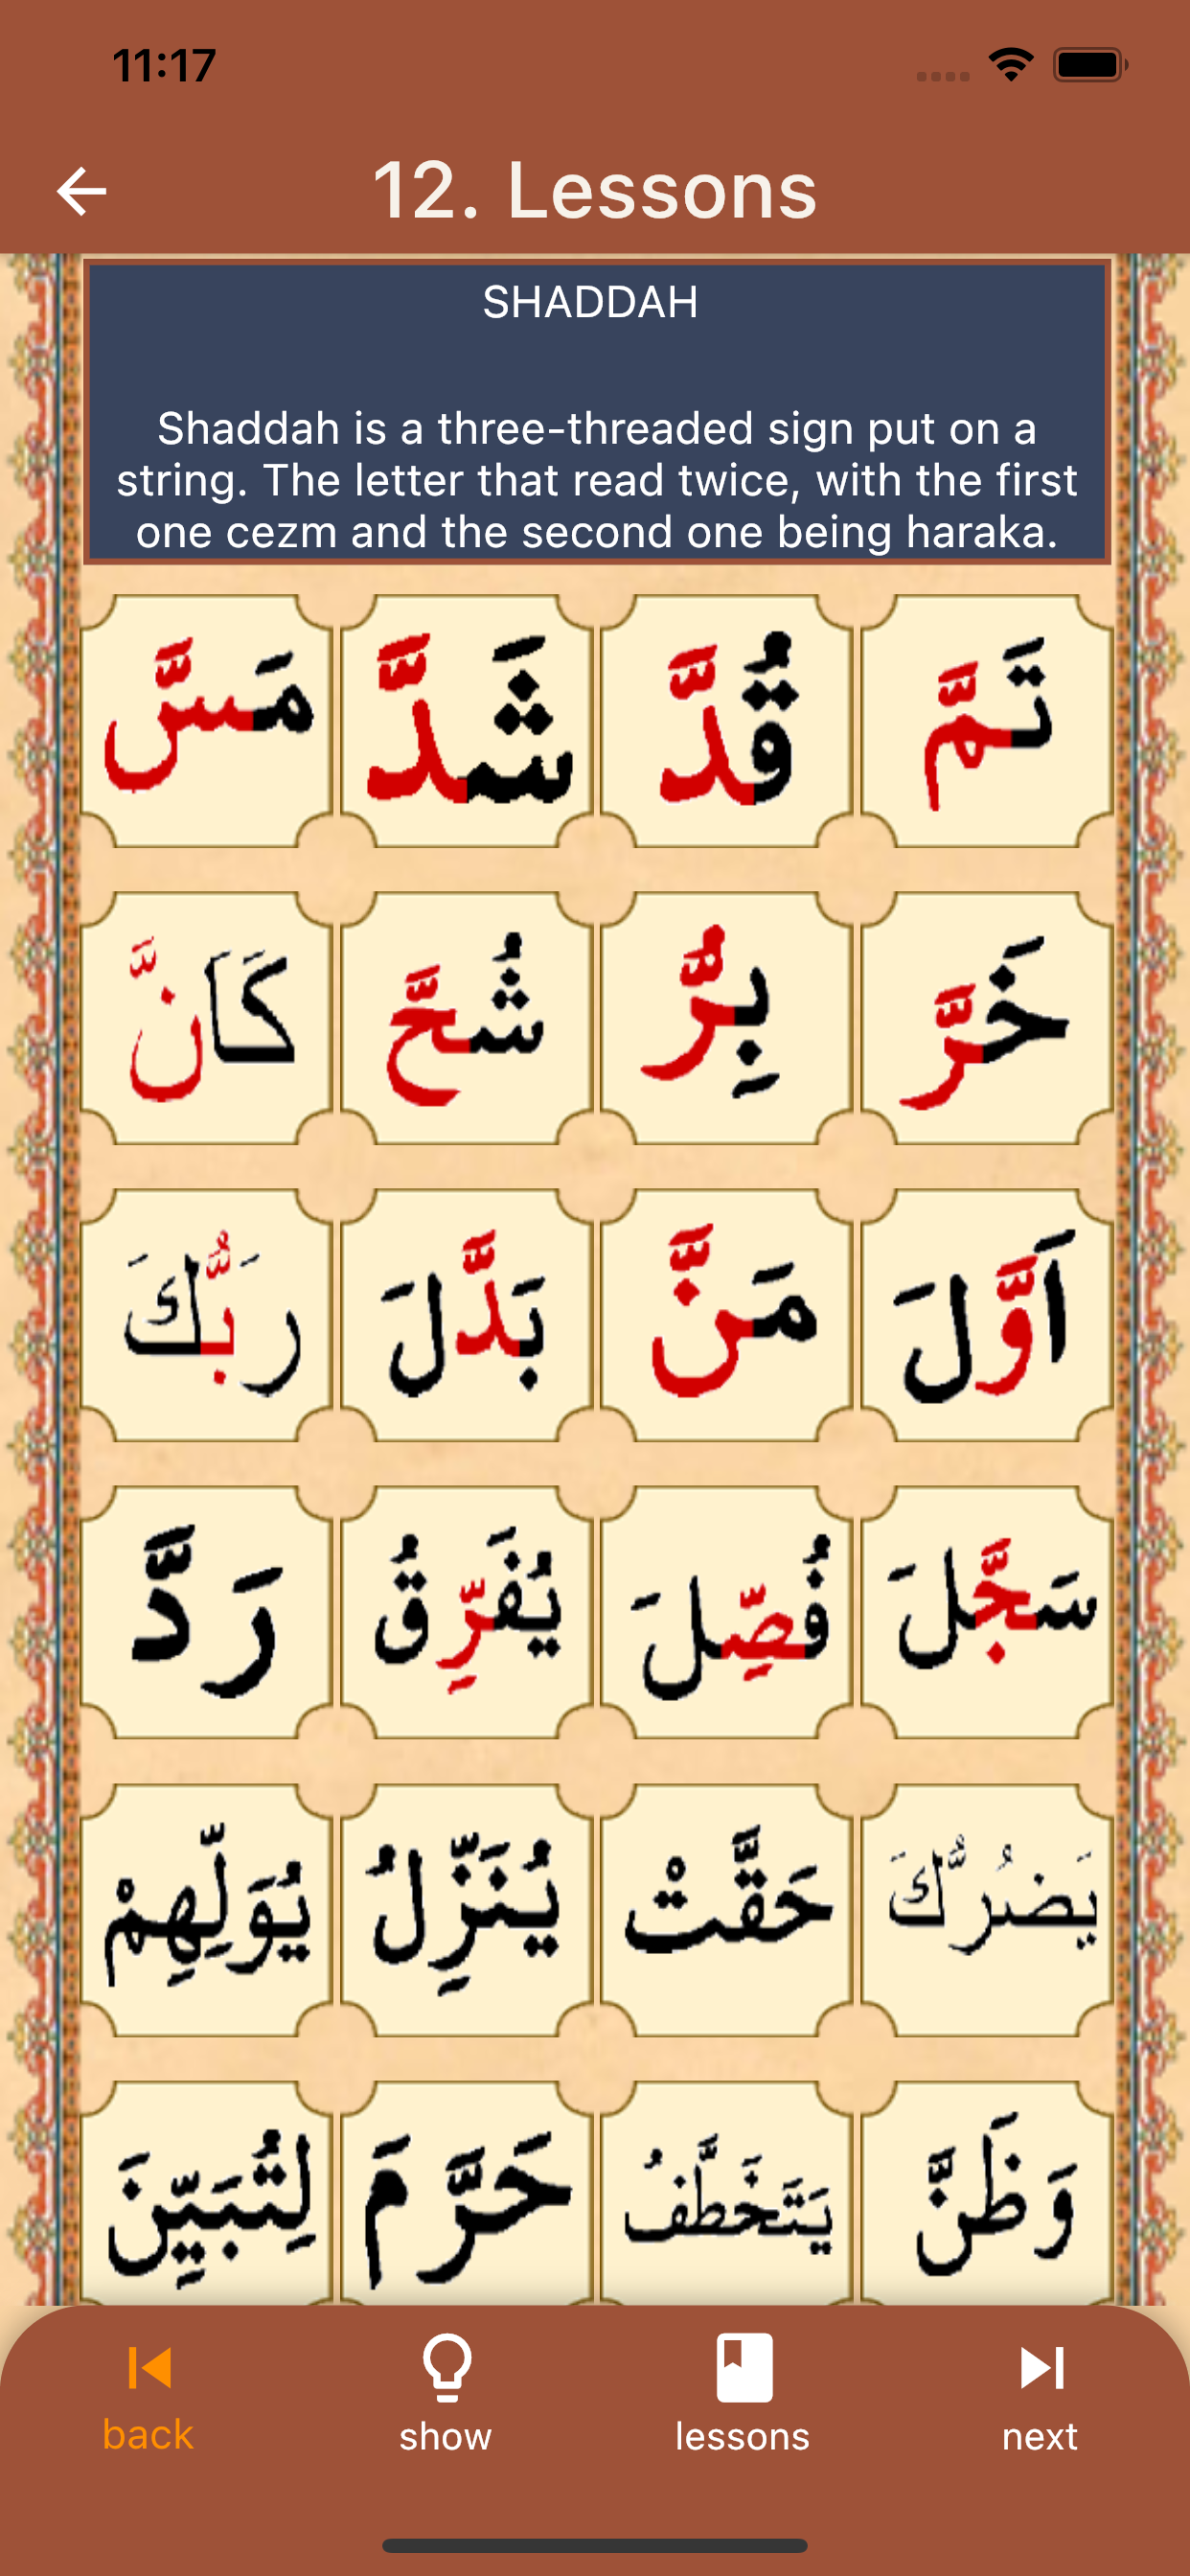 11:17
12. Lessons
SHADDAH
Shaddah is a three-threaded sign put on a
string. The letter that read twice, with the first
one cezm and the second one being haraka.
تَمَّ قُدَّ شَدَّ مَسَّ
خَرَّ بِرُّ شُحَّ كَانَّ
اَوَّلَ مَنَّ بَدَّلَ رَبُّكَ
سَجَّلَ فُصِّلَ يُفَرِّقُ رَدَّ
يَضُرُّكَ حَقَّتْ يُنَزِّلُ يُوَلِّهِمْ
وَظَنَّ يَتَخَطَّفُ حَرَّمَ لِتُبَيِّنَ
back show lessons next